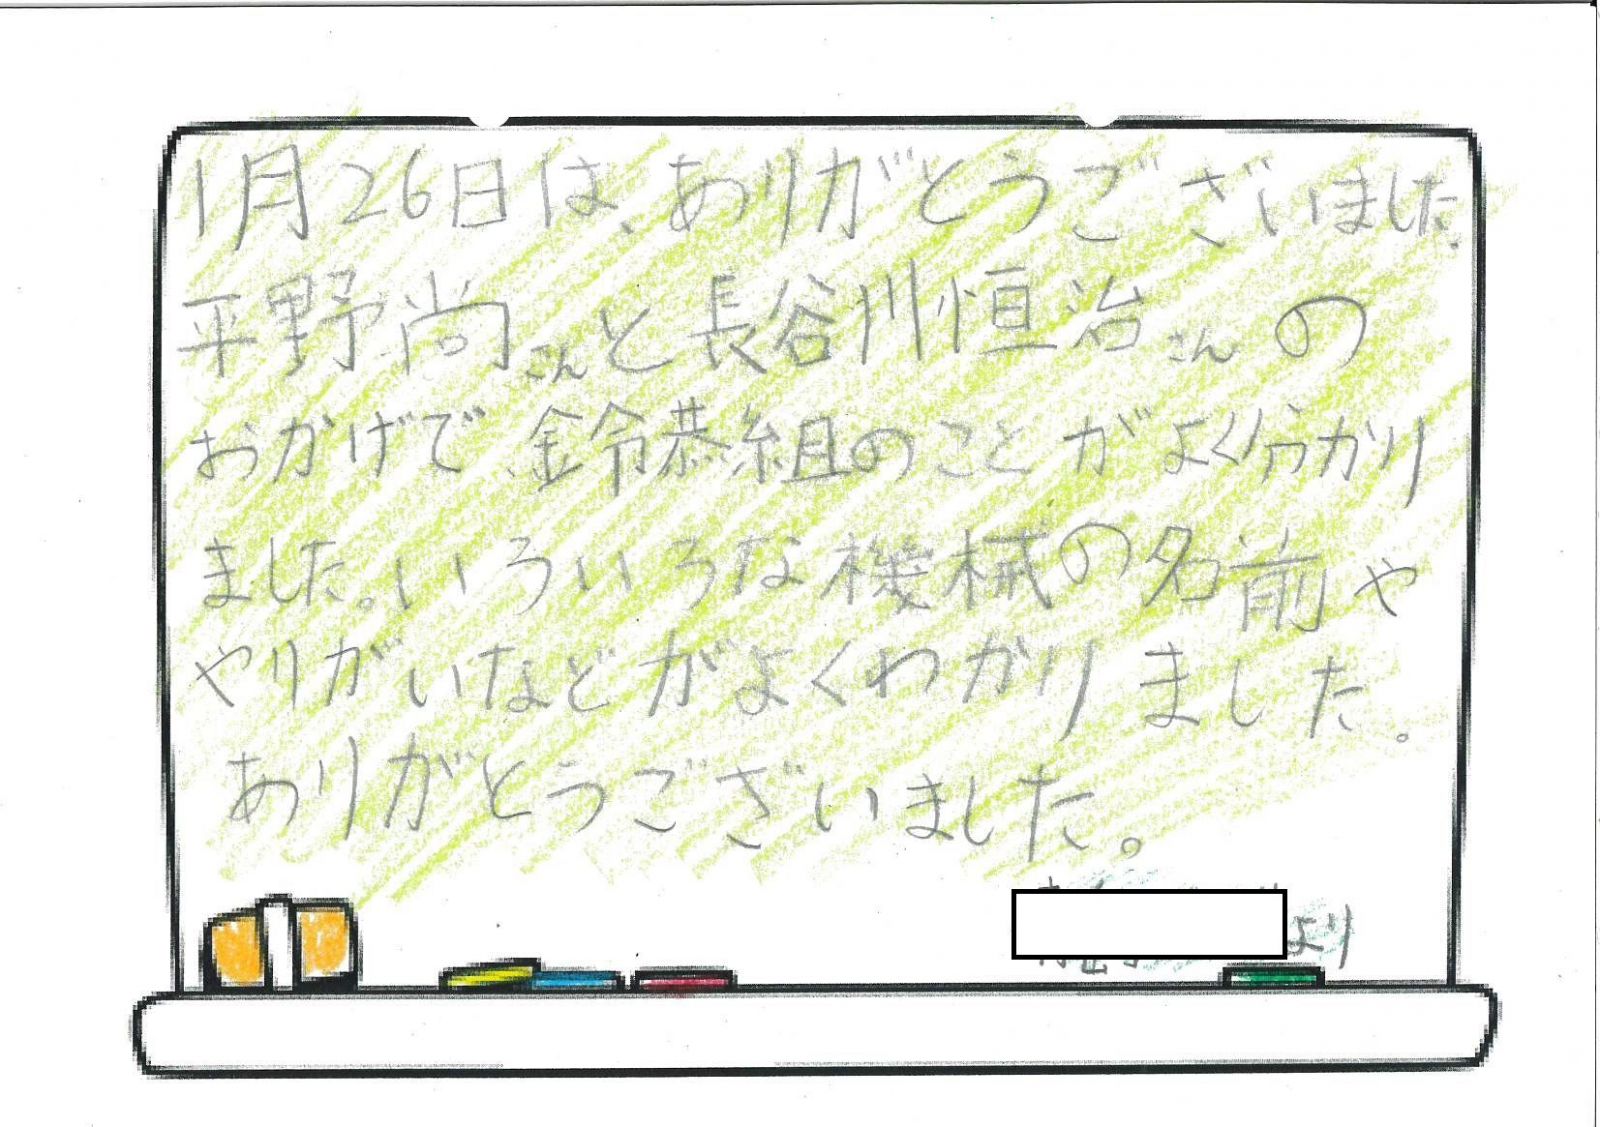 1月26日は、ありがとうございました。
平野尚さんと長谷川恒治さんの
おかげで、鈴恭組のことがよく分かり
ました。いろいろな機械の名前や
やりがいなどがよくわかりました。
ありがとうございました。
より